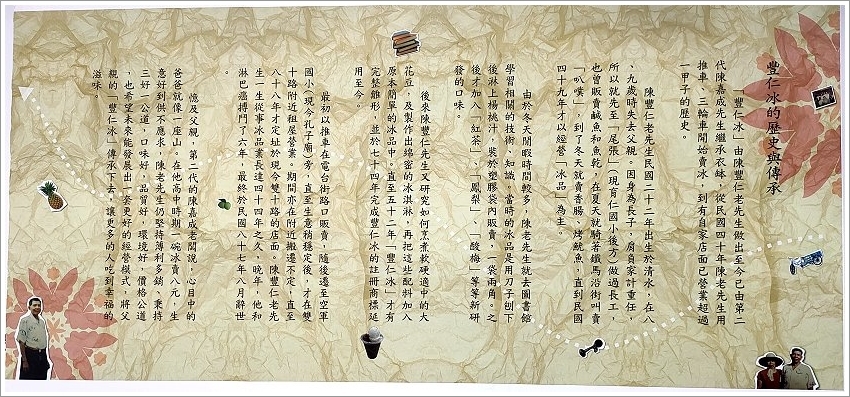 豐仁冰的歷史與傳承
「豐仁冰」由陳豐仁老先生做出至今已由第二
代陳嘉成先生繼承衣缽，從民國四十年陳老先生用
推車、三輪車開始賣冰，到有自家店面已營業超過
一甲子的歷史。
陳豐仁老先生民國二十二年出生於清水，在八
、九歲時失去父親。因身為長子，肩負家計重任，
所以就先至「尾張」(現育仁國小後方)做過長工，
也曾販賣鹹魚和魚乾，在夏天就騎著鐵馬沿街叫賣
「叭噗」，到了冬天就賣香腸、烤魷魚，直到民國
四十九年才以經營「冰品」為主。
由於冬天閒暇時間較多，陳老先生就去圖書館
學習相關的技術、知識。當時的冰品是用刀子刨下
後淋上楊桃汁，裝於塑膠袋內販賣，一袋兩角。之
後才加入「紅茶」、「鳳梨」、「酸梅」等等新研
發的口味。
後來陳豐仁先生又研究如何烹煮軟硬適中的大
花豆，及製作出綿蜜的冰淇淋，再把這些配料加入
原本簡單的冰品中。直至五十二年「豐仁冰」才有
完整雛形，並於七十四年完成豐仁冰的註冊商標延
用至今。
最初以推車在電台街路口販賣，隨後遷至空軍
國小(現今孔子廟)旁，直至生意稍穩定後，才在雙
十路附近租屋營業。期間亦在附近搬遷不定，直至
八十八年才定址於現今雙十路的店面。陳豐仁老先
生一生從事冰品業長達四十四年之久，晚年，他和
淋巴癌搏鬥了六年，最終於民國八十七年八月辭世
。
憶及父親，第二代的陳嘉成老闆說，心目中的
爸爸就像一座山。在他高中時期，一碗冰賣八元，生
意好到供不應求，陳老先生仍堅持薄利多銷、秉持
三好一公道，口味好，品質好，環境好，價格公道
，也希望未來能發展出一套更好的經營模式，將父
親的「豐仁冰」傳承下去，讓更多的人吃到幸福的
滋味。